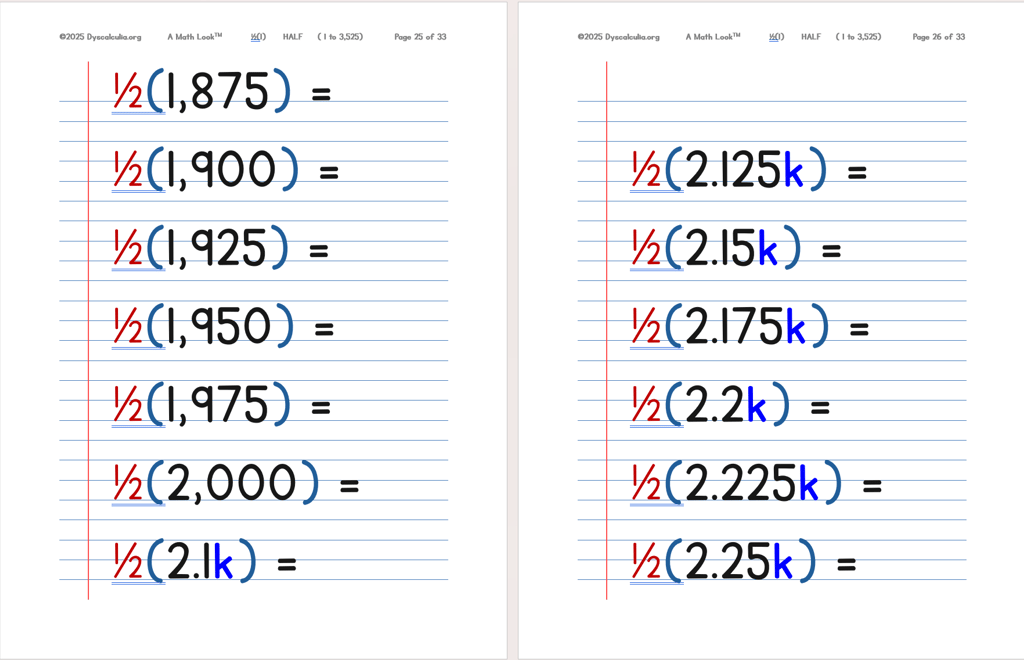 ©2025 Dyscalculia.org A Math Look™ ½() HALF ( 1 to 3,525) Page 25 of 33
½(1,875) =
½(1,900) =
½(1,925) =
½(1,950) =
½(1,975) =
½(2,000) =
½(2.1k) =
©2025 Dyscalculia.org A Math Look™ ½() HALF ( 1 to 3,525) Page 26 of 33
½(2.125k) =
½(2.15k) =
½(2.175k) =
½(2.2k) =
½(2.225k) =
½(2.25k) =